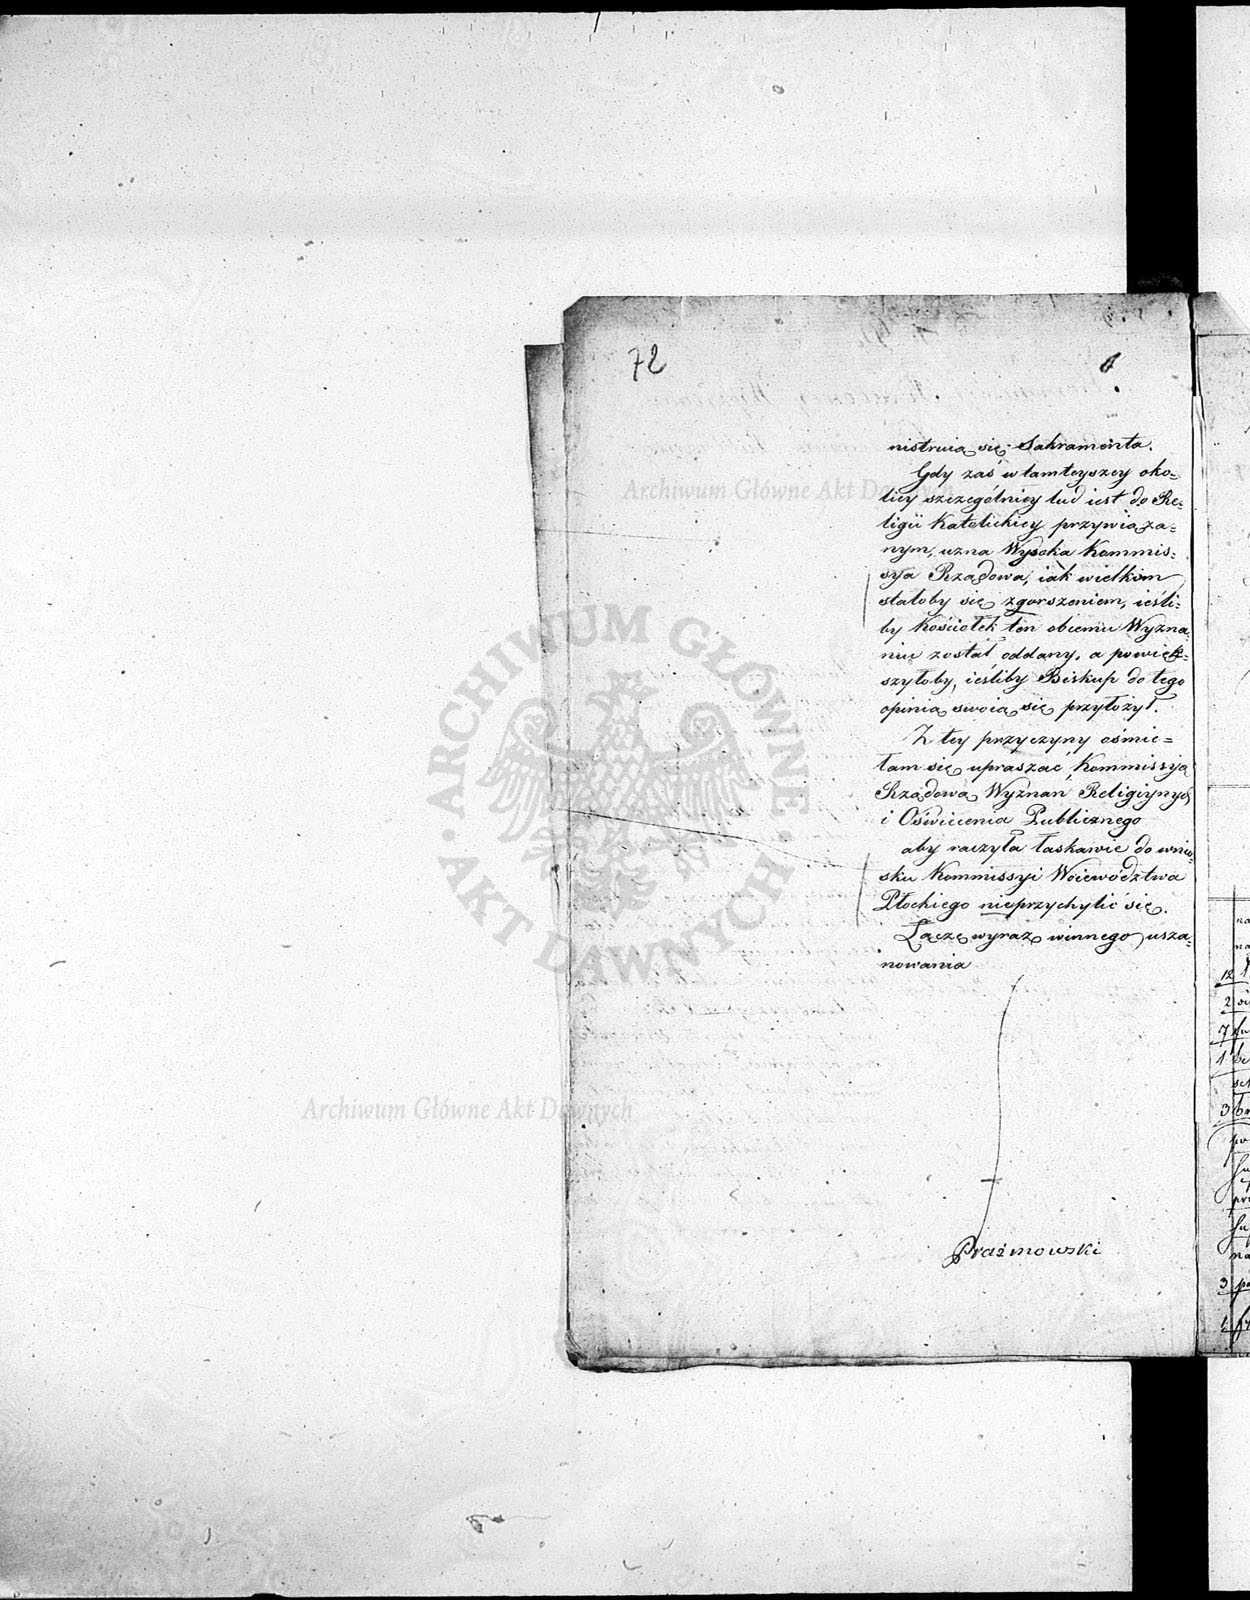 72
nistruią się Sakramenta.
Gdy zaś w tamteyszey oko-
licy szczególniey lud iest do Re-
ligii Katolickiey przywiąza-
nym, uzna Wysoka Kommis-
sya Rządowa, iak wielkiem
stałoby się zgorszeniem, ieśli-
by Kościołek ten obcemu Wyzna-
niu został oddany, a powięk-
szyłoby, ieśliby Biskup do tego
opinią swoią się przyłożył.
Z tey przyczyny ośmie-
lam się upraszać, Kommissyą
Rządową Wyznań Religiynych
i Oświecenia Publicznego
aby raczyła łaskawie do wnio-
sku Kommissyi Woiewództwa
Płockiego nieprzychylić się.
Łączę wyraz winnego usza-
nowania
Prażmowski
Archiwum Główne Akt Dawnych
ARCHIWUM GŁÓWNE · AKT DAWNYCH ·
Archiwum Główne Akt Dawnych
na
na
12
2
7
1
3
3
1